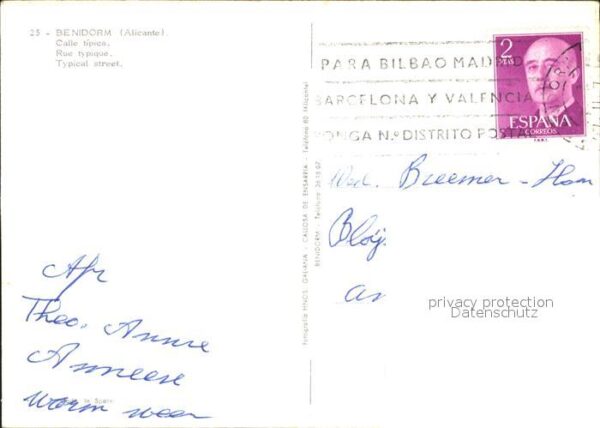 25 - BENIDORM (Alicante).
Calle típica.
Rue typique.
Typical street.
Afz
Theo. Annie
Anneese
Warm weer
in Spain
Fotografía HNOS. GALIANA - CALLOSA DE ENSARRIA - Teléfono 80 (Alicante)
BENIDORM - Teléfono
PARA BILBAO MADRID
BARCELONA Y VALENCIA
PONGA N.º DISTRITO POSTAL
2
PTAS
ESPAÑA
CORREOS
Wed. Breemer - Haa
Bloý
an
privacy protection
Datenschutz